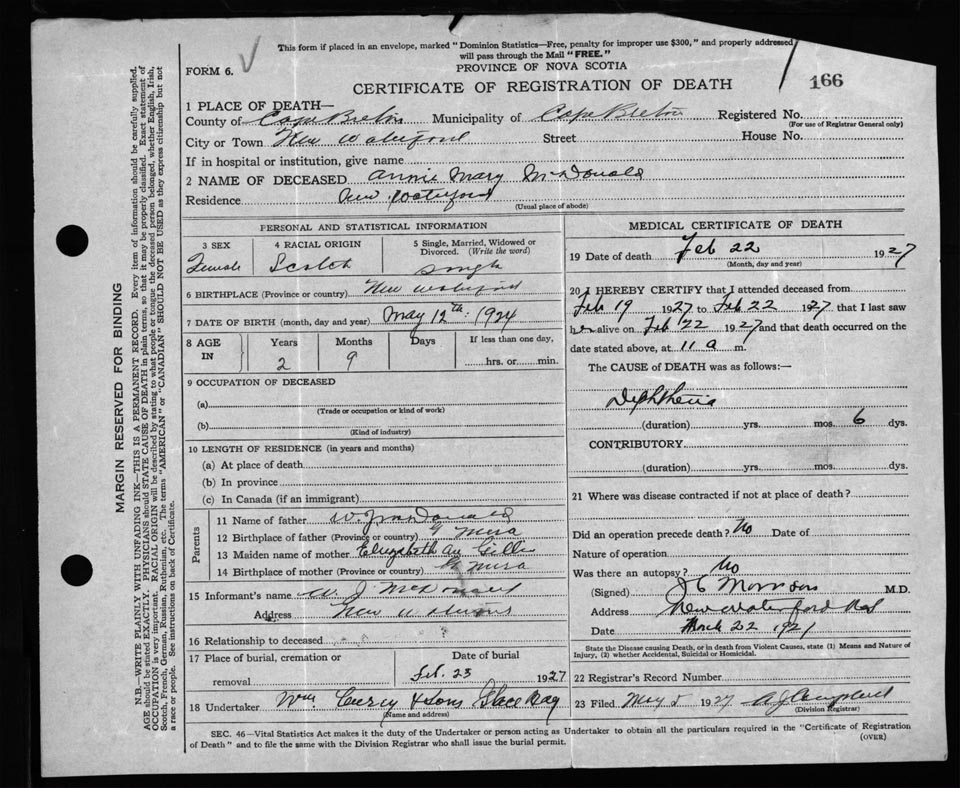 This form if placed in an envelope, marked "Dominion Statistics—Free, penalty for improper use $300," and properly addressed
will pass through the Mail "FREE."
FORM 6.
PROVINCE OF NOVA SCOTIA
166
CERTIFICATE OF REGISTRATION OF DEATH
1 PLACE OF DEATH—
County of Cape Breton Municipality of Cape Breton Registered No.
(For use of Registrar General only)
City or Town New Waterford Street House No.
If in hospital or institution, give name
2 NAME OF DECEASED Annie Mary McDonald
Residence New Waterford
(Usual place of abode)
PERSONAL AND STATISTICAL INFORMATION
3 SEX 4 RACIAL ORIGIN 5 Single, Married, Widowed or
Divorced. (Write the word)
Female Scotch Single
6 BIRTHPLACE (Province or country) New Waterford
7 DATE OF BIRTH (month, day and year) May 12th 1924
8 AGE IN Years Months Days If less than one day,
2 9 hrs. or min.
9 OCCUPATION OF DECEASED
(a)
(Trade or occupation or kind of work)
(b)
(Kind of industry)
10 LENGTH OF RESIDENCE (in years and months)
(a) At place of death
(b) In province
(c) In Canada (if an immigrant)
Parents
11 Name of father W. J. McDonald
12 Birthplace of father (Province or country) Mira
13 Maiden name of mother Elizabeth Gillis
14 Birthplace of mother (Province or country) Mira
15 Informant's name W J McDonald
Address New Waterford
16 Relationship to deceased
17 Place of burial, cremation or Date of burial
removal Feb. 23 1927
18 Undertaker Wm Curry & Sons Glace Bay
(Name and address)
MEDICAL CERTIFICATE OF DEATH
19 Date of death Feb 22 1927
(Month, day and year)
20 I HEREBY CERTIFY that I attended deceased from
Feb 19 1927 to Feb 22 1927 that I last saw
her alive on Feb 22 1927 and that death occurred on
the date stated above, at 11 a m.
The CAUSE of DEATH was as follows:—
Diphtheria
(duration) yrs. mos. 6 dys.
CONTRIBUTORY
(duration) yrs. mos. dys.
21 Where was disease contracted if not at place of death?
Did an operation precede death? No Date of
Nature of operation
Was there an autopsy? No
(Signed) J C Morrison M.D.
Address New Waterford
Date March 22 1927
State the Disease causing Death, or in death from Violent Causes, state (1) Means and Nature of
Injury, (2) whether Accidental, Suicidal or Homicidal.
22 Registrar's Record Number
23 Filed May 5 1927 A J Campbell
(Division Registrar)
SEC. 46—Vital Statistics Act makes it the duty of the Undertaker or person acting as Undertaker to obtain all the particulars required in the "Certificate of Registration
of Death" and to file the same with the Division Registrar who shall issue the burial permit.
(OVER)
MARGIN RESERVED FOR BINDING
N.B.—WRITE PLAINLY WITH UNFADING INK—THIS IS A PERMANENT RECORD. Every item of information should be carefully supplied.
AGE should be stated EXACTLY. PHYSICIANS should STATE CAUSE OF DEATH in plain terms, so that it may be properly classified. Exact statement of
OCCUPATION is very important. RACIAL ORIGIN will be described by stating to what people or tongue the deceased person belonged, whether English, Irish,
Scotch, French, German, Russian, Ruthenian, etc. The terms "AMERICAN" or "CANADIAN" SHOULD NOT BE USED as they express citizenship but not
a race or people. See instructions on back of Certificate.